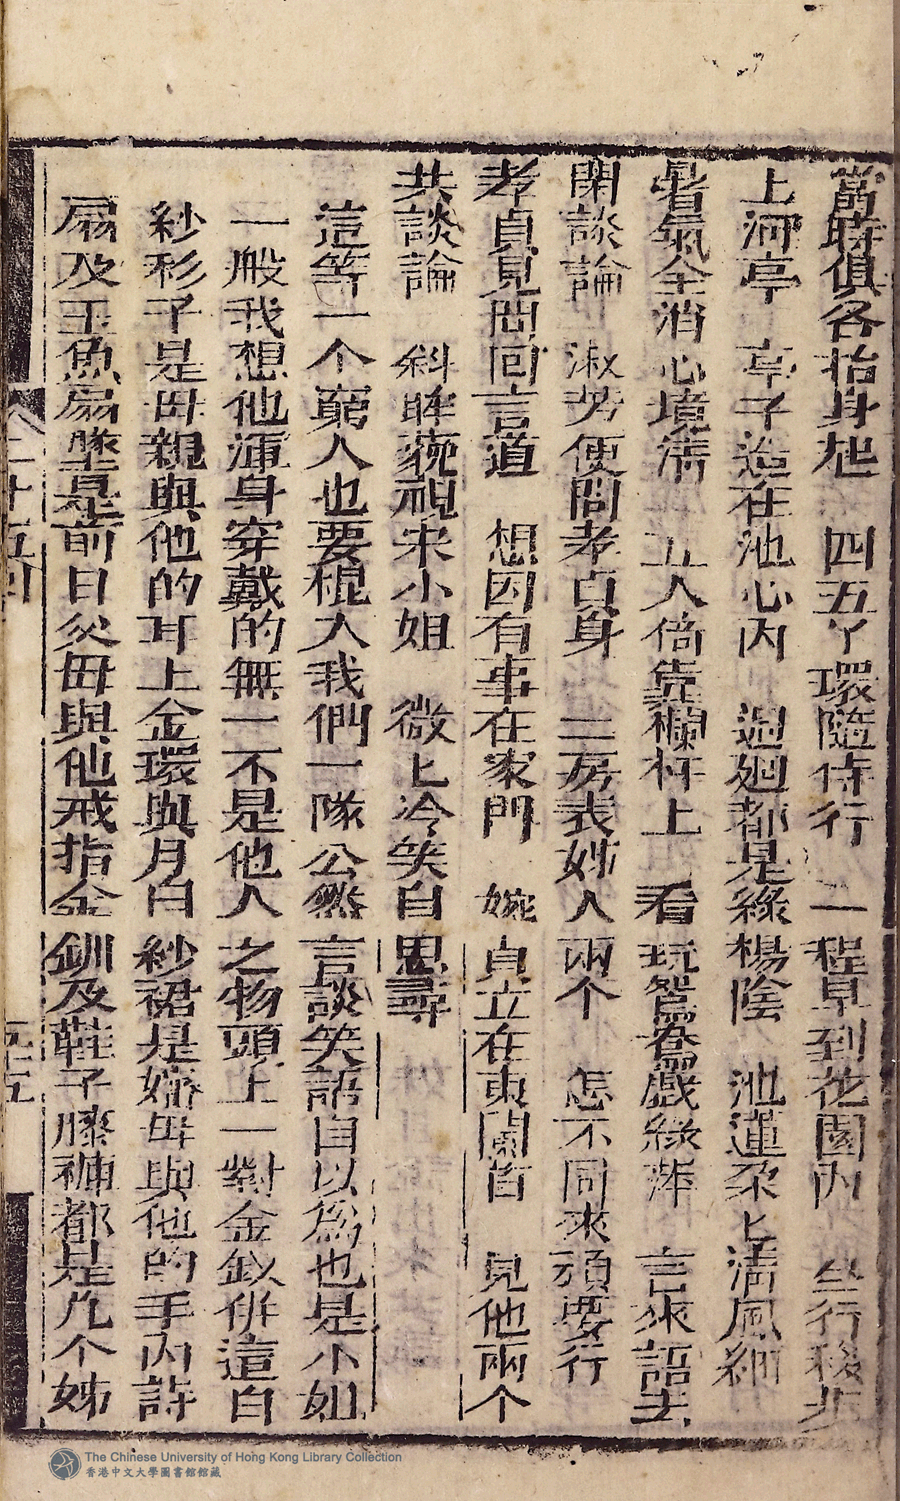 當時俱各抬身起　四五丫環隨侍行　一程早到花園內　並行移步
上河亭　亭子造在池心內　過廻都是綠楊陰　池蓮朶〻清風細
暑氣全消心境清　五人倚靠欄杆上　看玩鴛鴦戲綠萍　言來語去
閑談論　淑芳便問孝貞身　二房表妙人兩个　怎不同來頑耍行
孝貞見問回言道　想因有事在家門　婉貞立在東闌首　見他兩个
共談論　斜眸藐視宋小姐　微〻冷笑自思尋
這等一个窮人也要棍入我們一隊公然言談笑語自以為也是小姐
一般我想他渾身穿戴的無一不是他人之物頭上一對金釵併這白
紗衫子是母親與他的耳上金環與月白紗裙是嬸母與他的手內詩
扇及玉魚扇墜是前日父母與他戒指金釧及鞋子膝褲都是九个姊
二十五回
元五
The Chinese University of Hong Kong Library Collection
香港中文大學圖書館館藏